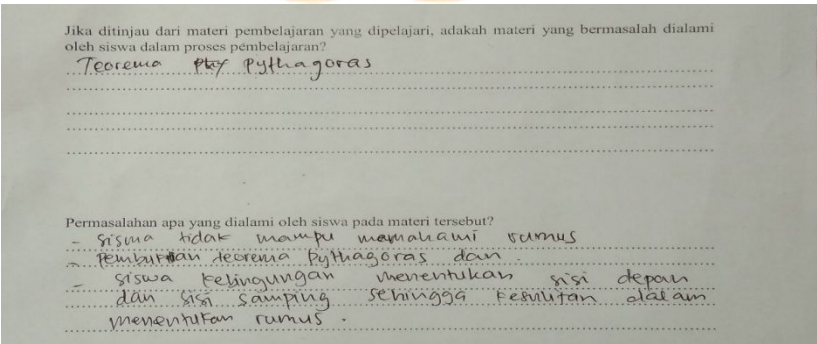 Jika ditinjau dari materi pembelajaran yang dipelajari, adakah materi yang bermasalah dialami
oleh siswa dalam proses pembelajaran?
Teorema Pythagoras
Permasalahan apa yang dialami oleh siswa pada materi tersebut?
- siswa tidak mampu memahami rumus
- Pembuktian teorema Pythagoras dan
- siswa kebingungan menentukan sisi depan
dan sisi samping sehingga kesulitan dalam
menentukan rumus.